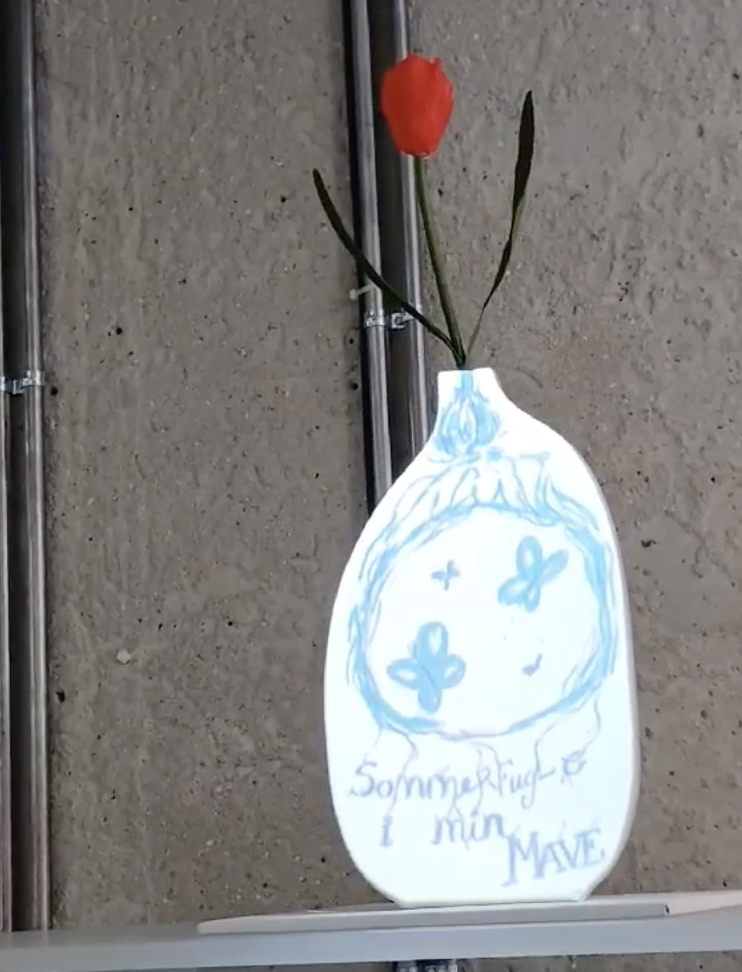 Sommerfugle
i min
MAVE